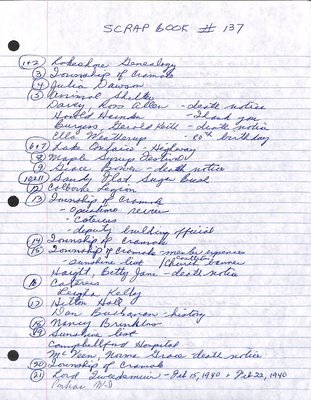 SCRAP BOOK # 137
1+2 Lakeshore Genealogy
3 Township of Cramahe
4 Julia Dawson
5 Animal Shelter
Davey, Ross Allen - death notice
Harold Hernden - Thank you
Burgess, Gerald Keith - death notice
Ella Weatherup - 80th birthday
6+7 Lake Ontario - Highway
8 Maple Syrup Festival
9 Grace Bowen - death notice
10+11 Sandy Flat Sugar Bush
12 Colborne Legion
13 Township of Cramahe
- Operations review
- Caterers
- deputy building official
14 Township of Cramahe
15 Township of Cramahe - member expenses
- Sunshine list / Church banner
Haight, Betty Jane - death notice
16 Caterers
Leigha Kelly
17 Hilton Hall
Dan Buchanan - history
18 Nancy
19 Sunshine list
Campbellford Hospital
Norma Grace death notice
20 Township of Cramahe
21 Lord Tweedsmuir - Feb 15, 1940 + Feb 22, 1940
W.I